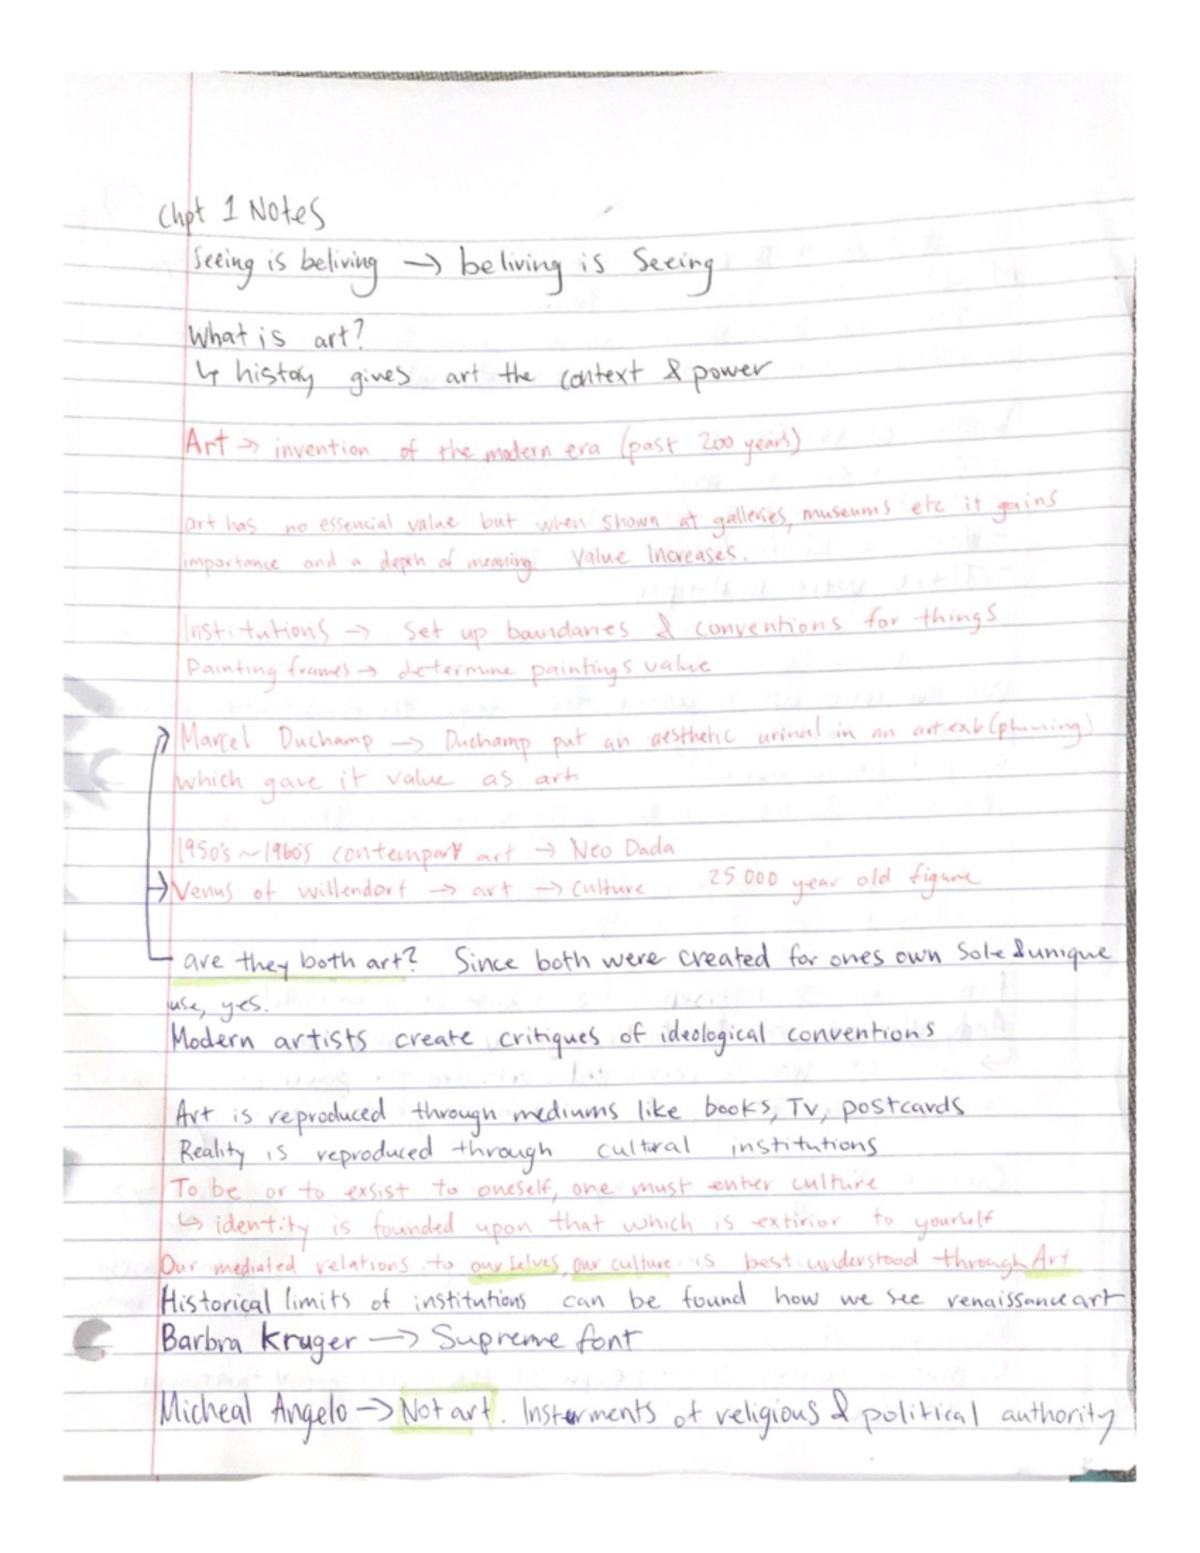 Chpt 1 Notes
Seeing is beliving → beliving is Seeing
What is art?
↳ history gives art the context & power
Art → invention of the modern era (past 200 years)
art has no essencial value but when shown at galleries, museums etc it gains
importance and a depth of meaning. Value Increases.
Institutions → Set up boundaries & conventions for things
Painting frames → determine paintings value
Marcel Duchamp → Duchamp put an aesthetic urinal in an art exb
which gave it value as art
1950's ~ 1960's contempory art → Neo Dada
Venus of willendorf → art → culture 25000 year old figure
are they both art? Since both were created for ones own sole & unique
use, yes.
Modern artists create critiques of ideological conventions
Art is reproduced through mediums like books, Tv, postcards
Reality is reproduced through cultural institutions
To be or to exsist to oneself, one must enter culture
↳ identity is founded upon that which is extirior to yourself
Our mediated relations to our selves, our culture is best understood through Art
Historical limits of institutions can be found how we see renaissance art
Barbra Kruger → Supreme font
Micheal Angelo → Not art. Insterments of religious & political authority